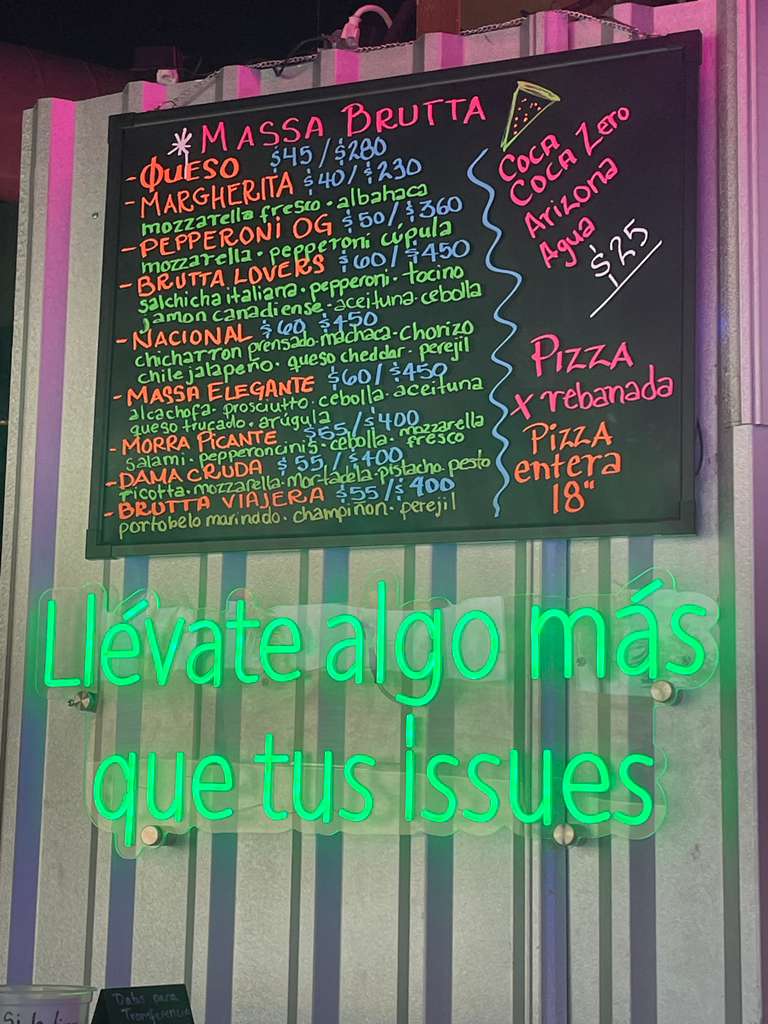 MASSA BRUTTA
- QUESO $45/$280
- MARGHERITA $40/$230
mozzarella fresco · albahaca
- PEPPERONI OG $50/$360
mozzarella · pepperoni cúpula
- BRUTTA LOVERS $60/$450
salchicha italiana · pepperoni · tocino
jamon canadiense · aceituna · cebolla
- NACIONAL $60 $450
chicharron prensado · machaca · chorizo
chile jalapeño · queso cheddar · perejil
- MASSA ELEGANTE $60/$450
alcachofa · prosciutto · cebolla · aceituna
queso trufado · arúgula
- MORRA PICANTE $55/$400
salami · pepperoncinis · cebolla · mozzarella fresco
- DAMA CRUDA $55/$400
ricotta · mozzarella · mortadela · pistacho · pesto
- BRUTTA VIAJERA $55/$400
portobelo marinado · champiñon · perejil
COCA
COCA Zero
Arizona
Agua
$25
PIZZA
x rebanada
PIZZA
entera
18"
Llévate algo más
que tus issues
Datos para
Transferencia